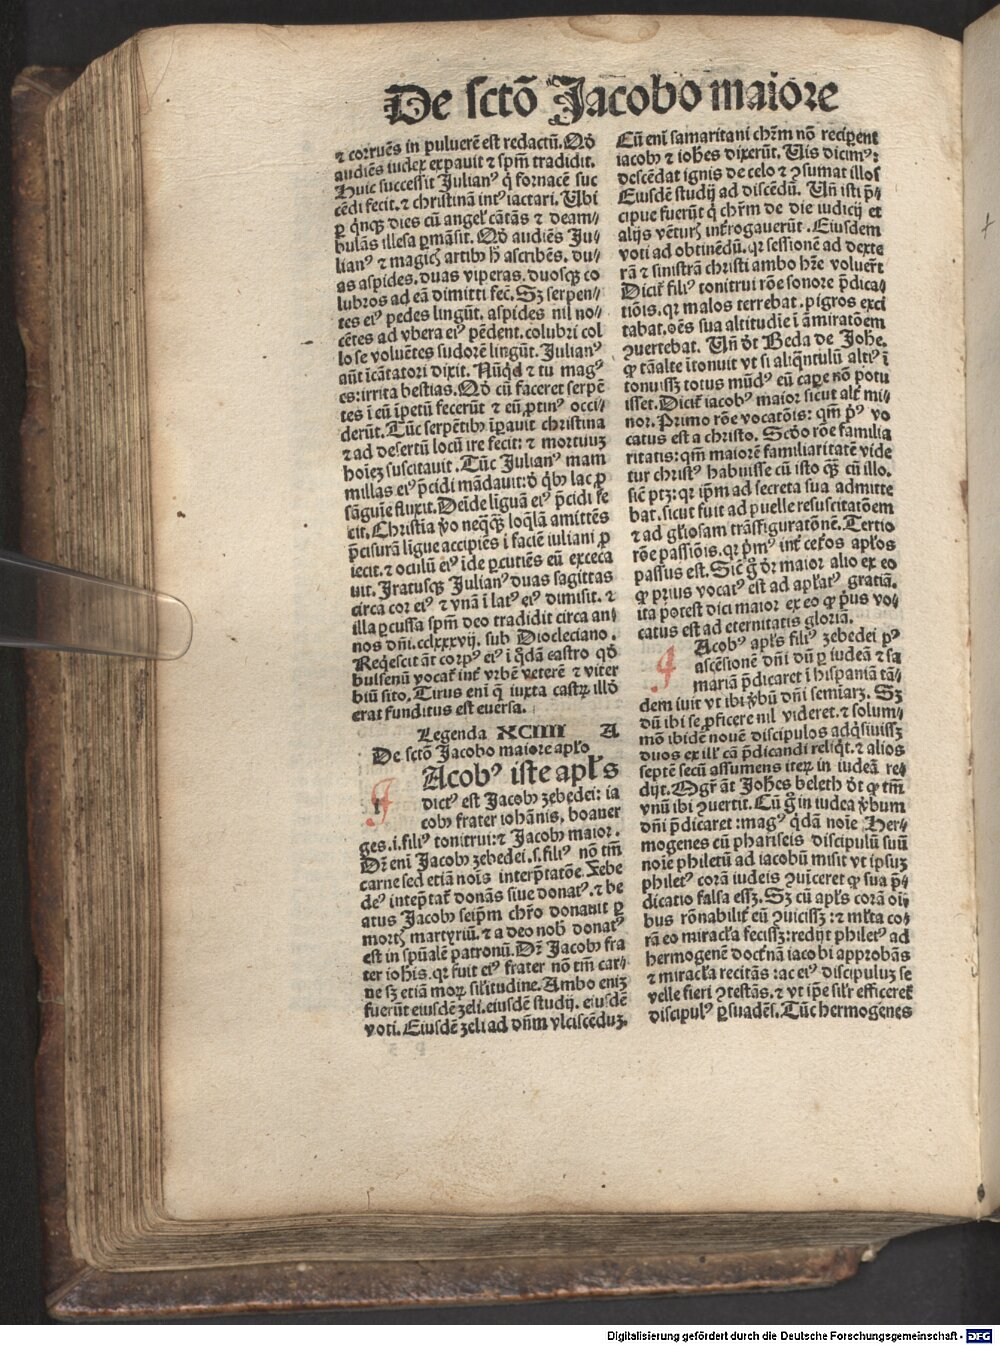 De sctō Jacobo maiore
⁊ corruēs in puluerē est redactū. Qḋ
audiēs iudex expauit ⁊ spm̄ tradidit.
Huic successit Julianꝰ q̇ fornacē suc
cēdi fecit. ⁊ christinā intꝰ iactari. Ubi
ꝑ q̇nqꝫ dies cū angel̕ cātās ⁊ deam⸗
bulās illesa ꝑmāsit. Qḋ audiēs Ju⸗
lianꝰ ⁊ magicꝭ artibꝰ h̄ ascribēs. du⸗
as aspides. duas viperas. duosqꝫ co
lubros ad eā dimitti fec̄. Sꝫ serpen⸗
tes eiꝰ pedes lingūt. aspides nil no⸗
cētes ad vbera eiꝰ pēdent. colubri col
lo se voluētes sudorē lingūt. Julianꝰ
aūt īcātatori dixit. Nūq̇d ⁊ tu magꝰ
es: irrita bestias. Qḋ cū faceret serpē
tes ī eū īpetū fecerūt ⁊ eū ꝓtinꝰ occi⸗
derūt. Tūc serpētibꝰ īꝑauit christina
⁊ ad desertū locū ire fecit: ⁊ mortuuꝫ
hoīeꝫ suscitauit. Tūc Julianꝰ mam
millas eiꝰ p̄cidi mādauit: ḋ q̇bꝰ lac ꝓ
sāguīe fluxit. Deīde līguā eiꝰ p̄cidi fe
cit. Christīa v̇o neq̄qꝫ loq̄lā amittēs
p̄cisurā līgue accipiēs ī faciē iuliani ꝓ
iecit. ⁊ oculū eiꝰ īde ꝑcutiēs eū exceca
uit. Iratusqꝫ Julianꝰ duas sagittas
circa cor eiꝰ ⁊ vnā ī latꝰ eiꝰ dimisit. ⁊
illa ꝑcussa spm̄ deo tradidit circa an⸗
nos dn̄i. cclxxxvij. sub Diocleciano.
Req̇escit āt corpꝰ eiꝰ ī q̇dā castro qḋ
bulsenū vocat̕ int̕ vrbē veterē ⁊ viter
biū sito. Tirus eni q̄ iuxta castꝝ illḋ
erat funditus est euersa.
Legenda XCIIII A
De sctō Jacobo maiore apl̕o
Jacobꝰ iste apl̕s
dictꝰ est Jacobꝰ zebedei: ia
cobꝰ frater iohānis, boaner
ges. i. filiꝰ tonitrui: ⁊ Jacobꝰ maior.
Dr̄ eni Jacobꝰ zebedei. s. filiꝰ nō tm̄
carne sed etiā noīs interp̄tatōe. Zebe
deꝰ intep̄tat̕ donās siue donatꝰ. ⁊ be
atus Jacobꝰ seip̄m chr̄o donauit ꝑ
mortꝭ martyriū. ⁊ a deo nobꝭ donatꝰ
est in sp̄ualē patronū. Dr̄ Jacobꝰ fra
ter ioh̄is. qꝛ fuit eiꝰ frater nō tm̄ car⸗
ne sꝫ etiā moꝝ sil̕itudine. Ambo eniꝫ
fuerūt eiusdē zeli. eiusdē studij. eiusdē
voti. Eiusdē zeli ad dn̄m vlciscēduꝫ.
Cū eni samaritani chr̄m nō reciꝑent
iacobꝰ ⁊ ioh̄es dixerūt. Uis dicimꝰ:
descēdat ignis de celo ⁊ ꝯsumat illos
Eiusdē studij ad discēdū. Uñ isti p̄⸗
cipue fuerūt q̇ chr̄m de die iudicij et
alijs vēturꝭ int̕rogauerūt. Eiusdem
voti ad obtinēdū. qꝛ sessionē ad dexte
rā ⁊ sinistrā christi ambo hr̄e voluer̄t
Dicit̕ filiꝰ tonitrui rōe sonore p̄dica⸗
tiōis. qꝛ malos terrebat. pigros exci
tabat. oēs sua altitudīe ī amiratōem
ꝯuertebat. Uñ ḋt Beda de Joh̄e.
ꝙ tā alte ītonuit vt si aliq̄ntulū altiꝰ ī
tonuissꝫ totus mūdꝰ eū caꝑe nō potu
isset. Dicit̕ iacobꝰ maior sicut alt̕ mi⸗
nor. Primo rōe vocatōis: qm̄ ṗꝰ vo
catus est a christo. Scḋo rōe familia
ritatis: qm̄ maiorē familiaritatē vide
tur christꝰ habuisse cū isto q̄ꝫ cū illo.
sic̄ ptꝫ: qꝛ ip̄m ad secreta sua admitte
bat. sicut fuit ad puelle resuscitatōem
⁊ ad gl̕iosam trāsfiguratōnē. Tertio
rōe passiōis. qꝛ ṗmꝰ int̕ cet̕os apl̕os
passus est. Sic̄ g̊ ḋr maior alio ex eo
ꝙ prius vocatꝰ est ad apl̕atꝰ gratiā.
ita potest dici maior ex eo ꝙ ṗus vo⸗
catus est ad eternitatis gloriā.
Jacobꝰ apl̕s filiꝰ zebedei pꝰ
ascēsionē dn̄i dū ꝑ iudeā ⁊ sa
mariā p̄dicaret ī hispaniā tā⸗
dem iuit vt ibi v̇bū dn̄i semīarꝫ. Sꝫ
dū ibi se ꝓficere nil videret. ⁊ solum⸗
mō ibidē nouē discipulos adq̇siuissꝫ
duos ex ill̕ cā p̄dicandi reliq̇t. ⁊ alios
septē secū assumens iteꝝ in iudeā re⸗
dijt. Mgr̄ āt Joh̄es beleth ḋt ꝙ tm̄
vnū ibi ꝯuertit. Cū g̊ in iudea v̇bum
dn̄i p̄dicaret: magꝰ q̇dā noīe Her⸗
mogenes cū phariseis discipulū suū
noīe philetū ad iacobū misit vt ipsuꝫ
philetꝰ corā iudeis ꝯuīceret ꝙ sua p̄⸗
dicatio falsa essꝫ. Sꝫ cū apl̕s corā oī⸗
bus rōnabilit̕ eū ꝯuicissꝫ: ⁊ ml̕ta co⸗
rā eo miracl̕a fecissꝫ: redijt philetꝰ ad
hermogenē doct̕nā iacobi approbās
⁊ miracl̕a recitās: ac eiꝰ discipuluꝫ se
velle fieri ꝯtestās. ⁊ vt ip̄e sil̕r efficeret̕
discipulꝰ ꝑsuadēs. Tūc hermogenes
Digitalisierung gefördert durch die Deutsche Forschungsgemeinschaft - DFG